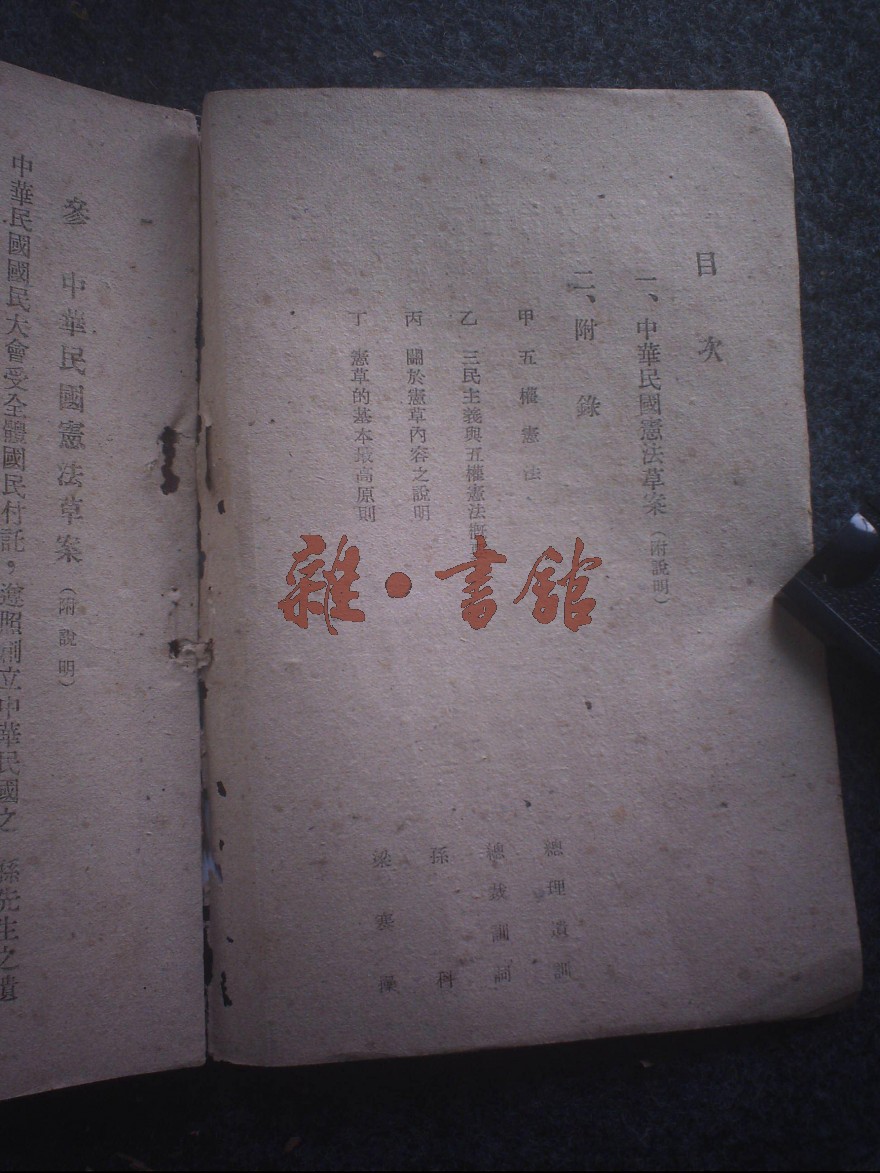 目次
一、中華民國憲法草案（附說明）
二、附錄
甲 五權憲法 總理遺訓
乙 三民主義與五權憲法概 總裁訓詞
丙 關於憲草內容之說明 孫科
丁 憲草的基本最高原則 梁寒操
參 中華民國憲法草案（附說明）
中華民國國民大會受全體國民付託，遵照創立中華民國之 孫先生之遺
雜·書館